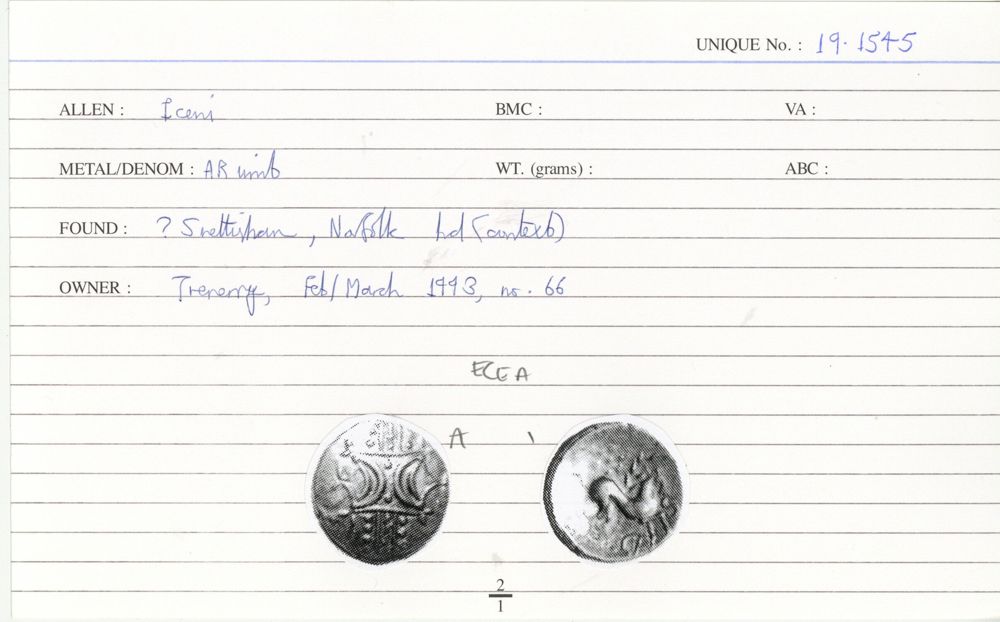 UNIQUE No. : 19.1545
ALLEN : Iceni BMC : VA :
METAL/DENOM : AR unit WT. (grams) : ABC :
FOUND : ? Snettisham, Norfolk hd (context)
OWNER : Trenerry, Feb/March 1993, no. 66
ECE A
A
2
1